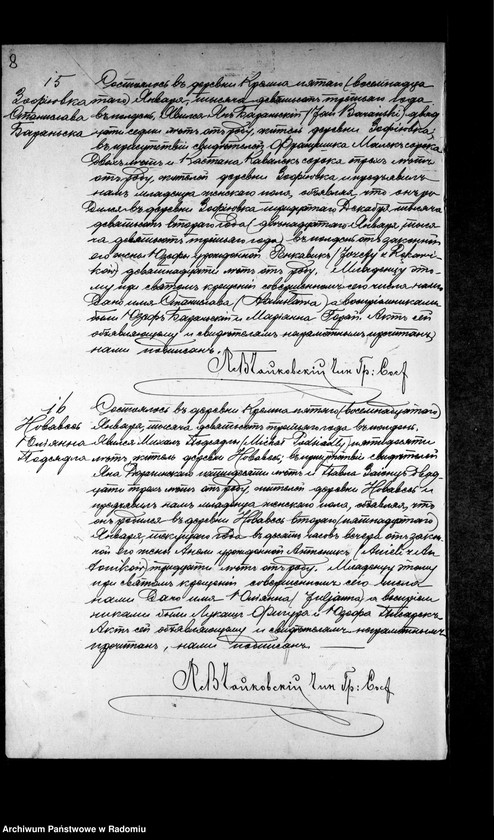 8
15
Зофіовка
Станислава
Бараньска
Состоялось въ деревни Кремпа пятаго (восемнадца
таго) Января, тысяча девятьсотъ третьяго года
въ полдень. Явился Янъ Баранскій (Jan Barański) двад
цати семи лѣтъ отъ роду, житель деревни Зофіовка,
въ присутствіи свидѣтелей Францишка сорока
двухъ лѣтъ и Каетана сорока трехъ лѣтъ
отъ роду, жителей деревни Зофіовка и предъявилъ
намъ младенца женскаго пола, объявляя, что онъ ро
дился въ деревни Зофіовка тридцатаго Декабря тысяча
девятьсотъ втораго года (двенадцатаго Января, тыся
ча девятьсотъ третьяго года) въ полночь отъ законной
его жены Юзефы урожденной (Józefy z
) девятнадцати лѣтъ отъ роду. Младенцу это
му при святомъ крещеніи совершенномъ сего числа нами
дано имя Станислава (Stanisława) а воспріемниками
были Юзефъ Баранскій и Маріанна. Актъ сей
объявляющему и свидѣтелямъ неграмотнымъ прочитанъ,
нами подписанъ.
Кс В Чайковскій Чин Гр: Сост
16
Нововесь
Юліянна
Подсядла
Состоялось въ деревни Кремпа пятаго (восемнадцатаго)
Января, тысяча девятьсотъ третьяго года въ полдень.
Явился Михалъ Подсядлы (Michał Podsiadły) пятидесяти
лѣтъ отъ роду, житель деревни Нововесь, въ присутствіи свидѣтелей
Яна пятидесяти лѣтъ и Павла двад
цати трехъ лѣтъ отъ роду, жителей деревни Нововесь и
предъявилъ намъ младенца женскаго пола, объявляя, что
онъ родился въ деревни Нововесь втораго (пятнадцатаго)
Января текущаго года въ десять часовъ вечера отъ закон
ной его жены Анели урожденной Антоникъ (Anieli z An
toników) тридцати лѣтъ отъ роду. Младенцу этому
при святомъ крещеніи совершенномъ сего числа
нами дано имя Юліянна (Juljanna) а воспріем
никами были Лукашъ Фигура и Юзефа
Актъ сей объявляющему и свидѣтелямъ неграмотнымъ
прочитанъ, нами подписанъ.
Кс В Чайковскій Чин Гр: Сост
Archiwum Państwowe w Radomiu